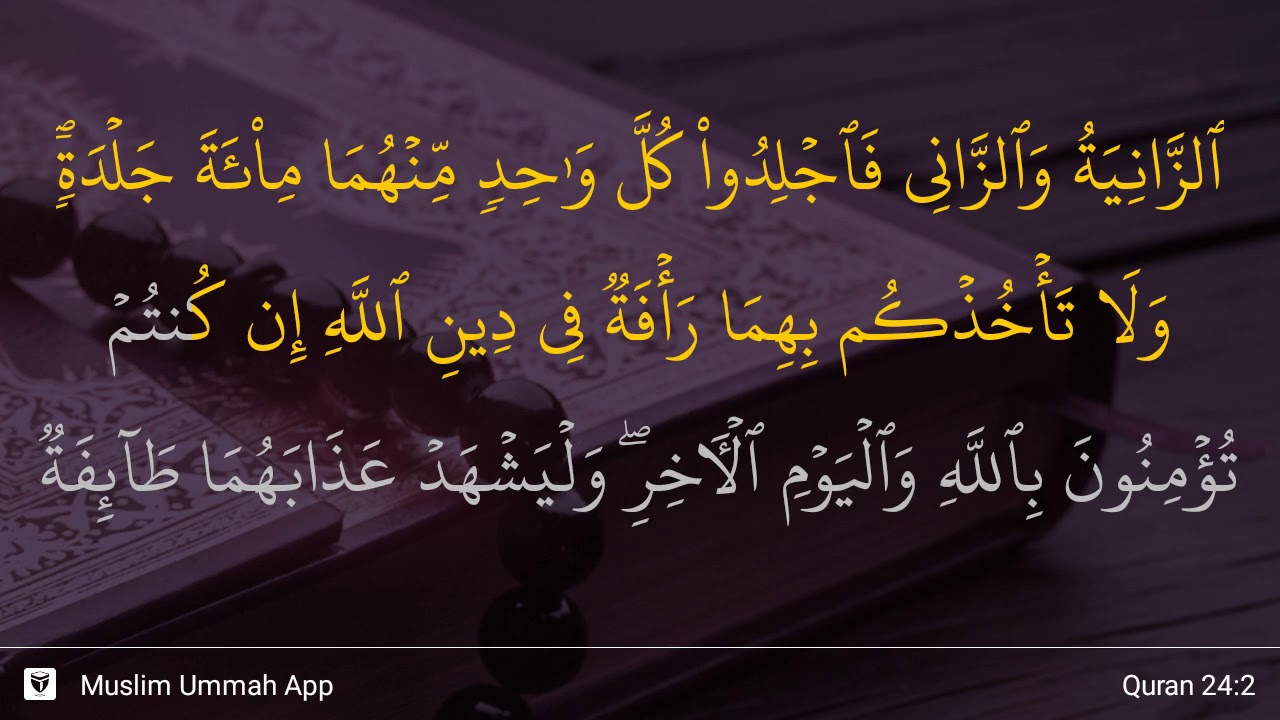 ٱلزَّانِيَةُ وَٱلزَّانِى فَٱجْلِدُوا۟ كُلَّ وَٰحِدٍ مِّنْهُمَا مِا۟ئَةَ جَلْدَةٍ ۖ
وَلَا تَأْخُذْكُم بِهِمَا رَأْفَةٌ فِى دِينِ ٱللَّهِ إِن كُنتُمْ
تُؤْمِنُونَ بِٱللَّهِ وَٱلْيَوْمِ ٱلْـَٔاخِرِ ۖ وَلْيَشْهَدْ عَذَابَهُمَا طَآئِفَةٌ
Muslim Ummah App
Quran 24:2